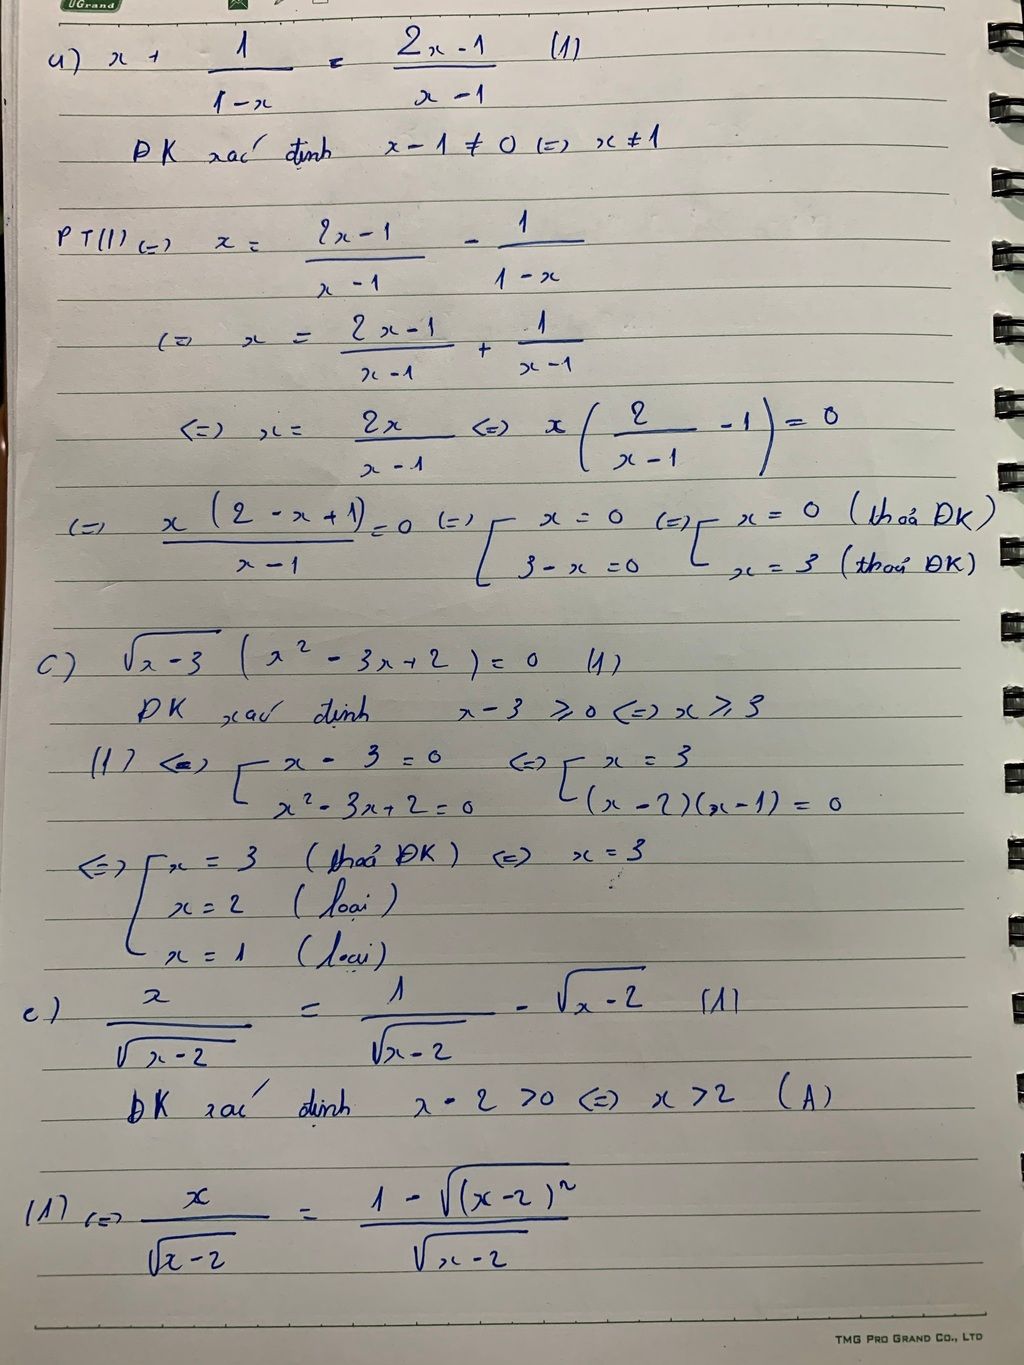 UGrand
a) x + 1/(1-x) = (2x-1)/(x-1) (1)
ĐK xác định x - 1 ≠ 0 (=) x ≠ 1
PT(1) (=) x = (2x-1)/(x-1) - 1/(1-x)
(=) x = (2x-1)/(x-1) + 1/(x-1)
<=> x = 2x/(x-1) <=> x(2/(x-1) - 1) = 0
(=) x(2-x+1)/(x-1) = 0 (=) [ x = 0 ; 3-x = 0 (=) [ x = 0 (thoả ĐK) ; x = 3 (thoả ĐK)
c) √(x-3) (x² - 3x + 2) = 0 (1)
ĐK xác định x-3 ⩾ 0 <=> x ⩾ 3
(1) <=> [ x - 3 = 0 ; x² - 3x + 2 = 0 <=> [ x = 3 ; (x-2)(x-1) = 0
<=> [ x = 3 (thoả ĐK) <=> x = 3
x = 2 (loại)
x = 1 (loại)
e) x/√(x-2) = 1/√(x-2) - √(x-2) (1)
ĐK xác định x - 2 > 0 <=> x > 2 (A)
(1) <=> x/√(x-2) = (1 - √((x-2)²))/√(x-2)
TMG PRO GRAND CO., LTD